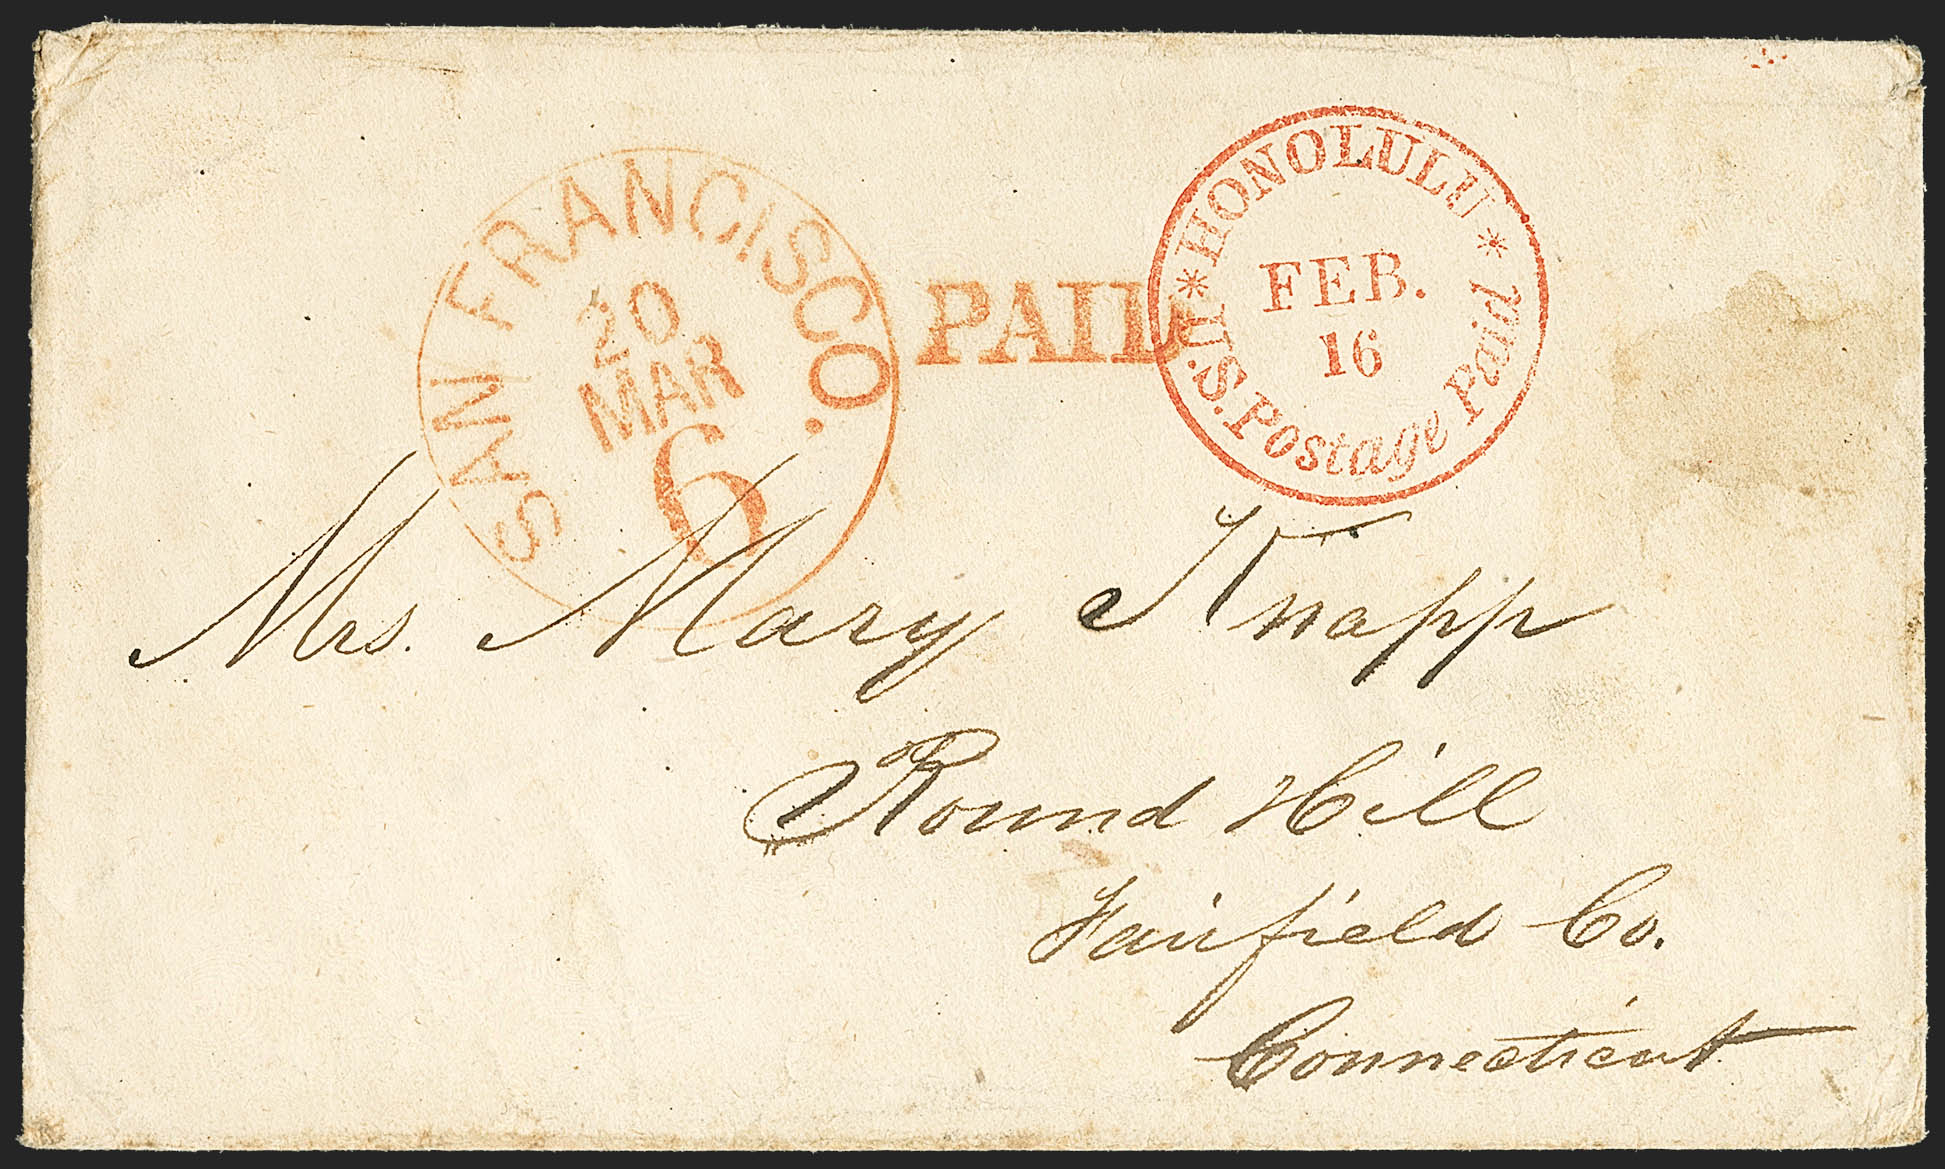 SAN FRANCISCO.
20
MAR
6
PAID
*HONOLULU*
U.S. Postage Paid
FEB.
16
Mrs. Mary Knapp
Round Hill
Fairfield Co.
Connecticut